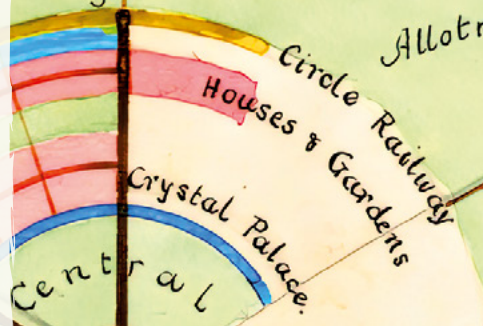 Allotr
Circle Railway
Houses & Gardens
Crystal Palace.
Central